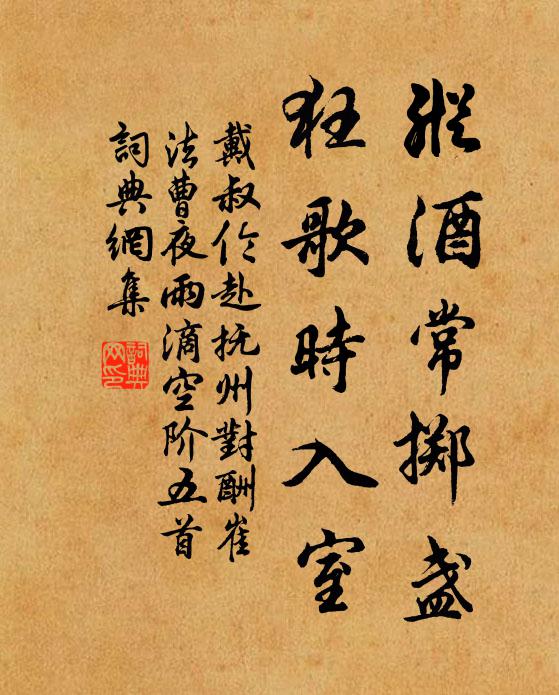 縱酒常擲盏
狂歌時入室
戴叔伦赴抚州對酬崔
法曹夜雨滴空阶五首
詞典網集
詞典網印